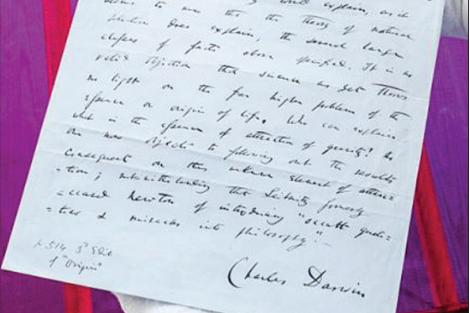 would explain, as it
seems to me that the theory of natural
selection does explain, the several large
classes of facts above specified. It is no
valid objection that science as yet throws
no light on the far higher problem of the
essence or origin of life. Who can explain
what is the essence of attraction of gravity? No
one now objects to following out the results
consequent on this unknown element of attrac
-tion; notwithstanding that Leibnitz formerly
accused Newton of introducing "occult quali
-ties & miracles into philosophy".—
p 514 3d Edit
of "Origin"
Charles Darwin